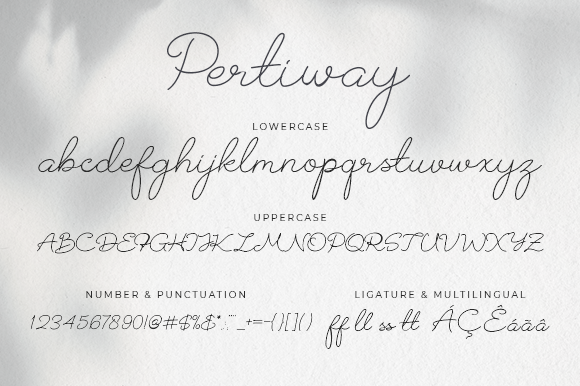 Pertiway
LOWERCASE
abcdefghijklmnopqrstuvwxyz
UPPERCASE
ABCDEFGHIJKLMNOPQRSTUVWXYZ
NUMBER & PUNCTUATION
1234567890!@#$%&*:;"_+=-(){}[]()
LIGATURE & MULTILINGUAL
ff ll ss tt ÁÇÊáãâ